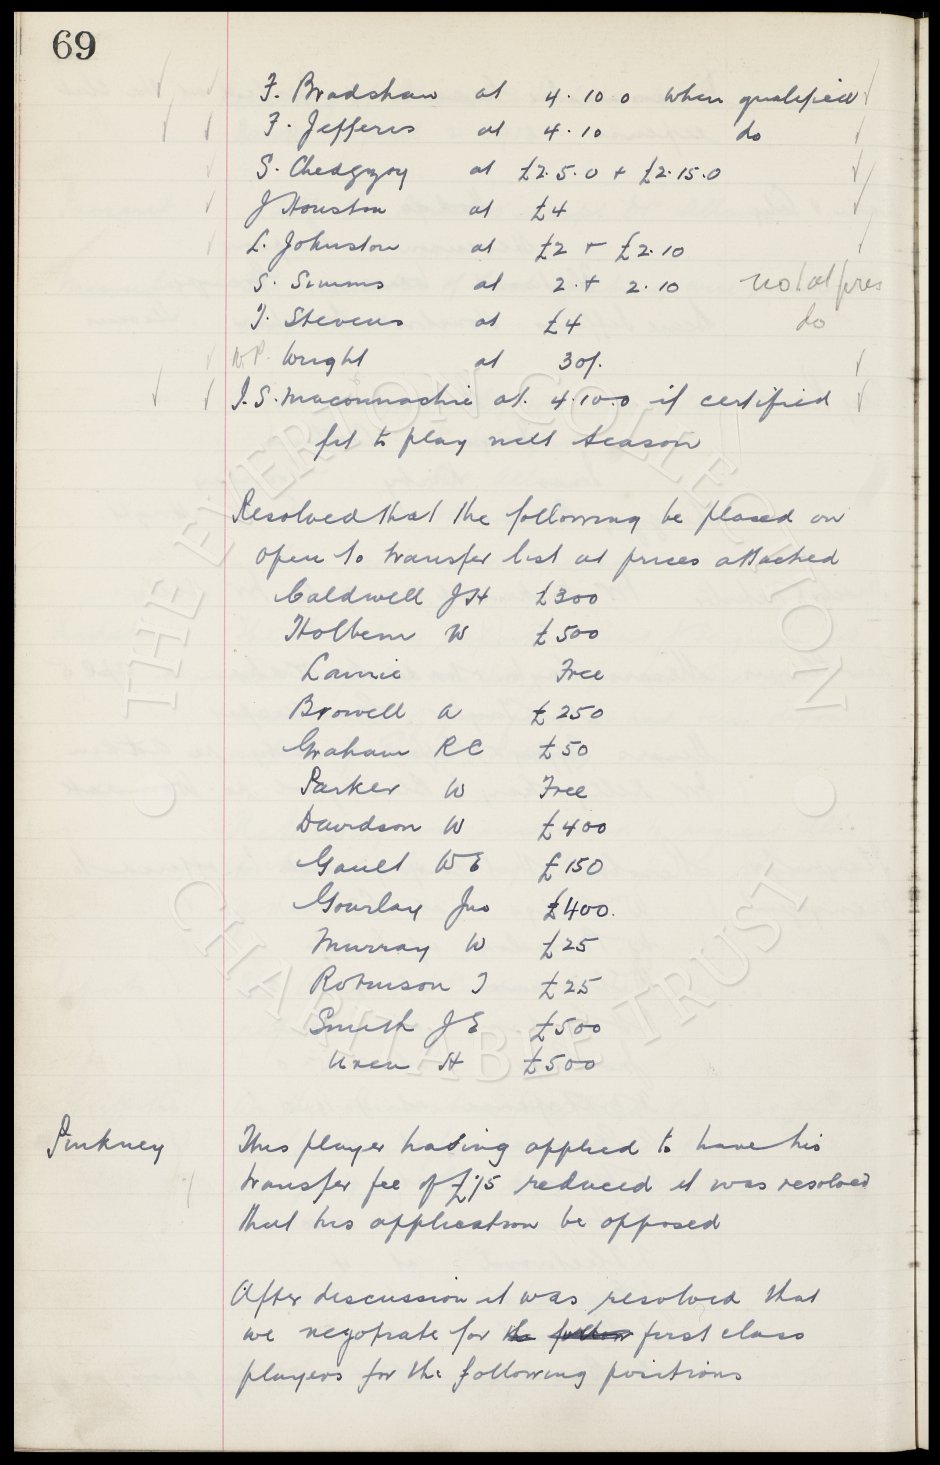 69
F. Bradshaw at 4. 10 0 when qualified
F. Jefferis at 4. 10 do
S. Chedgzoy at £2. 5. 0 + £2. 15. 0
J Houston at £4
L. Johnston at £2 + £2. 10
S. Simms at 2. + 2. 10 not at pres
T. Stevens at £4 do
W.P. Wright at 30/.
J. S. Maconnachie at. 4. 10. 0 if certified
fit to play next season
Resolved that the following be placed on
open to transfer list at prices attached
Caldwell J H £300
Holbem W £500
Lawrie Free
Browell A £250
Graham R C £50
Parker W Free
Davidson W £400
Gault W E £150
Gourlay Jno £400.
Murray W £25
Robinson T £25
Smith J E £500
Uren H £500
Pinkney This player having applied to have his
transfer fee of £75 reduced it was resolved
that his application be opposed
After discussion it was resolved that
we negotiate for the follow first class
players for the following positions
THE EVERTON COLLECTION
CHARITABLE TRUST